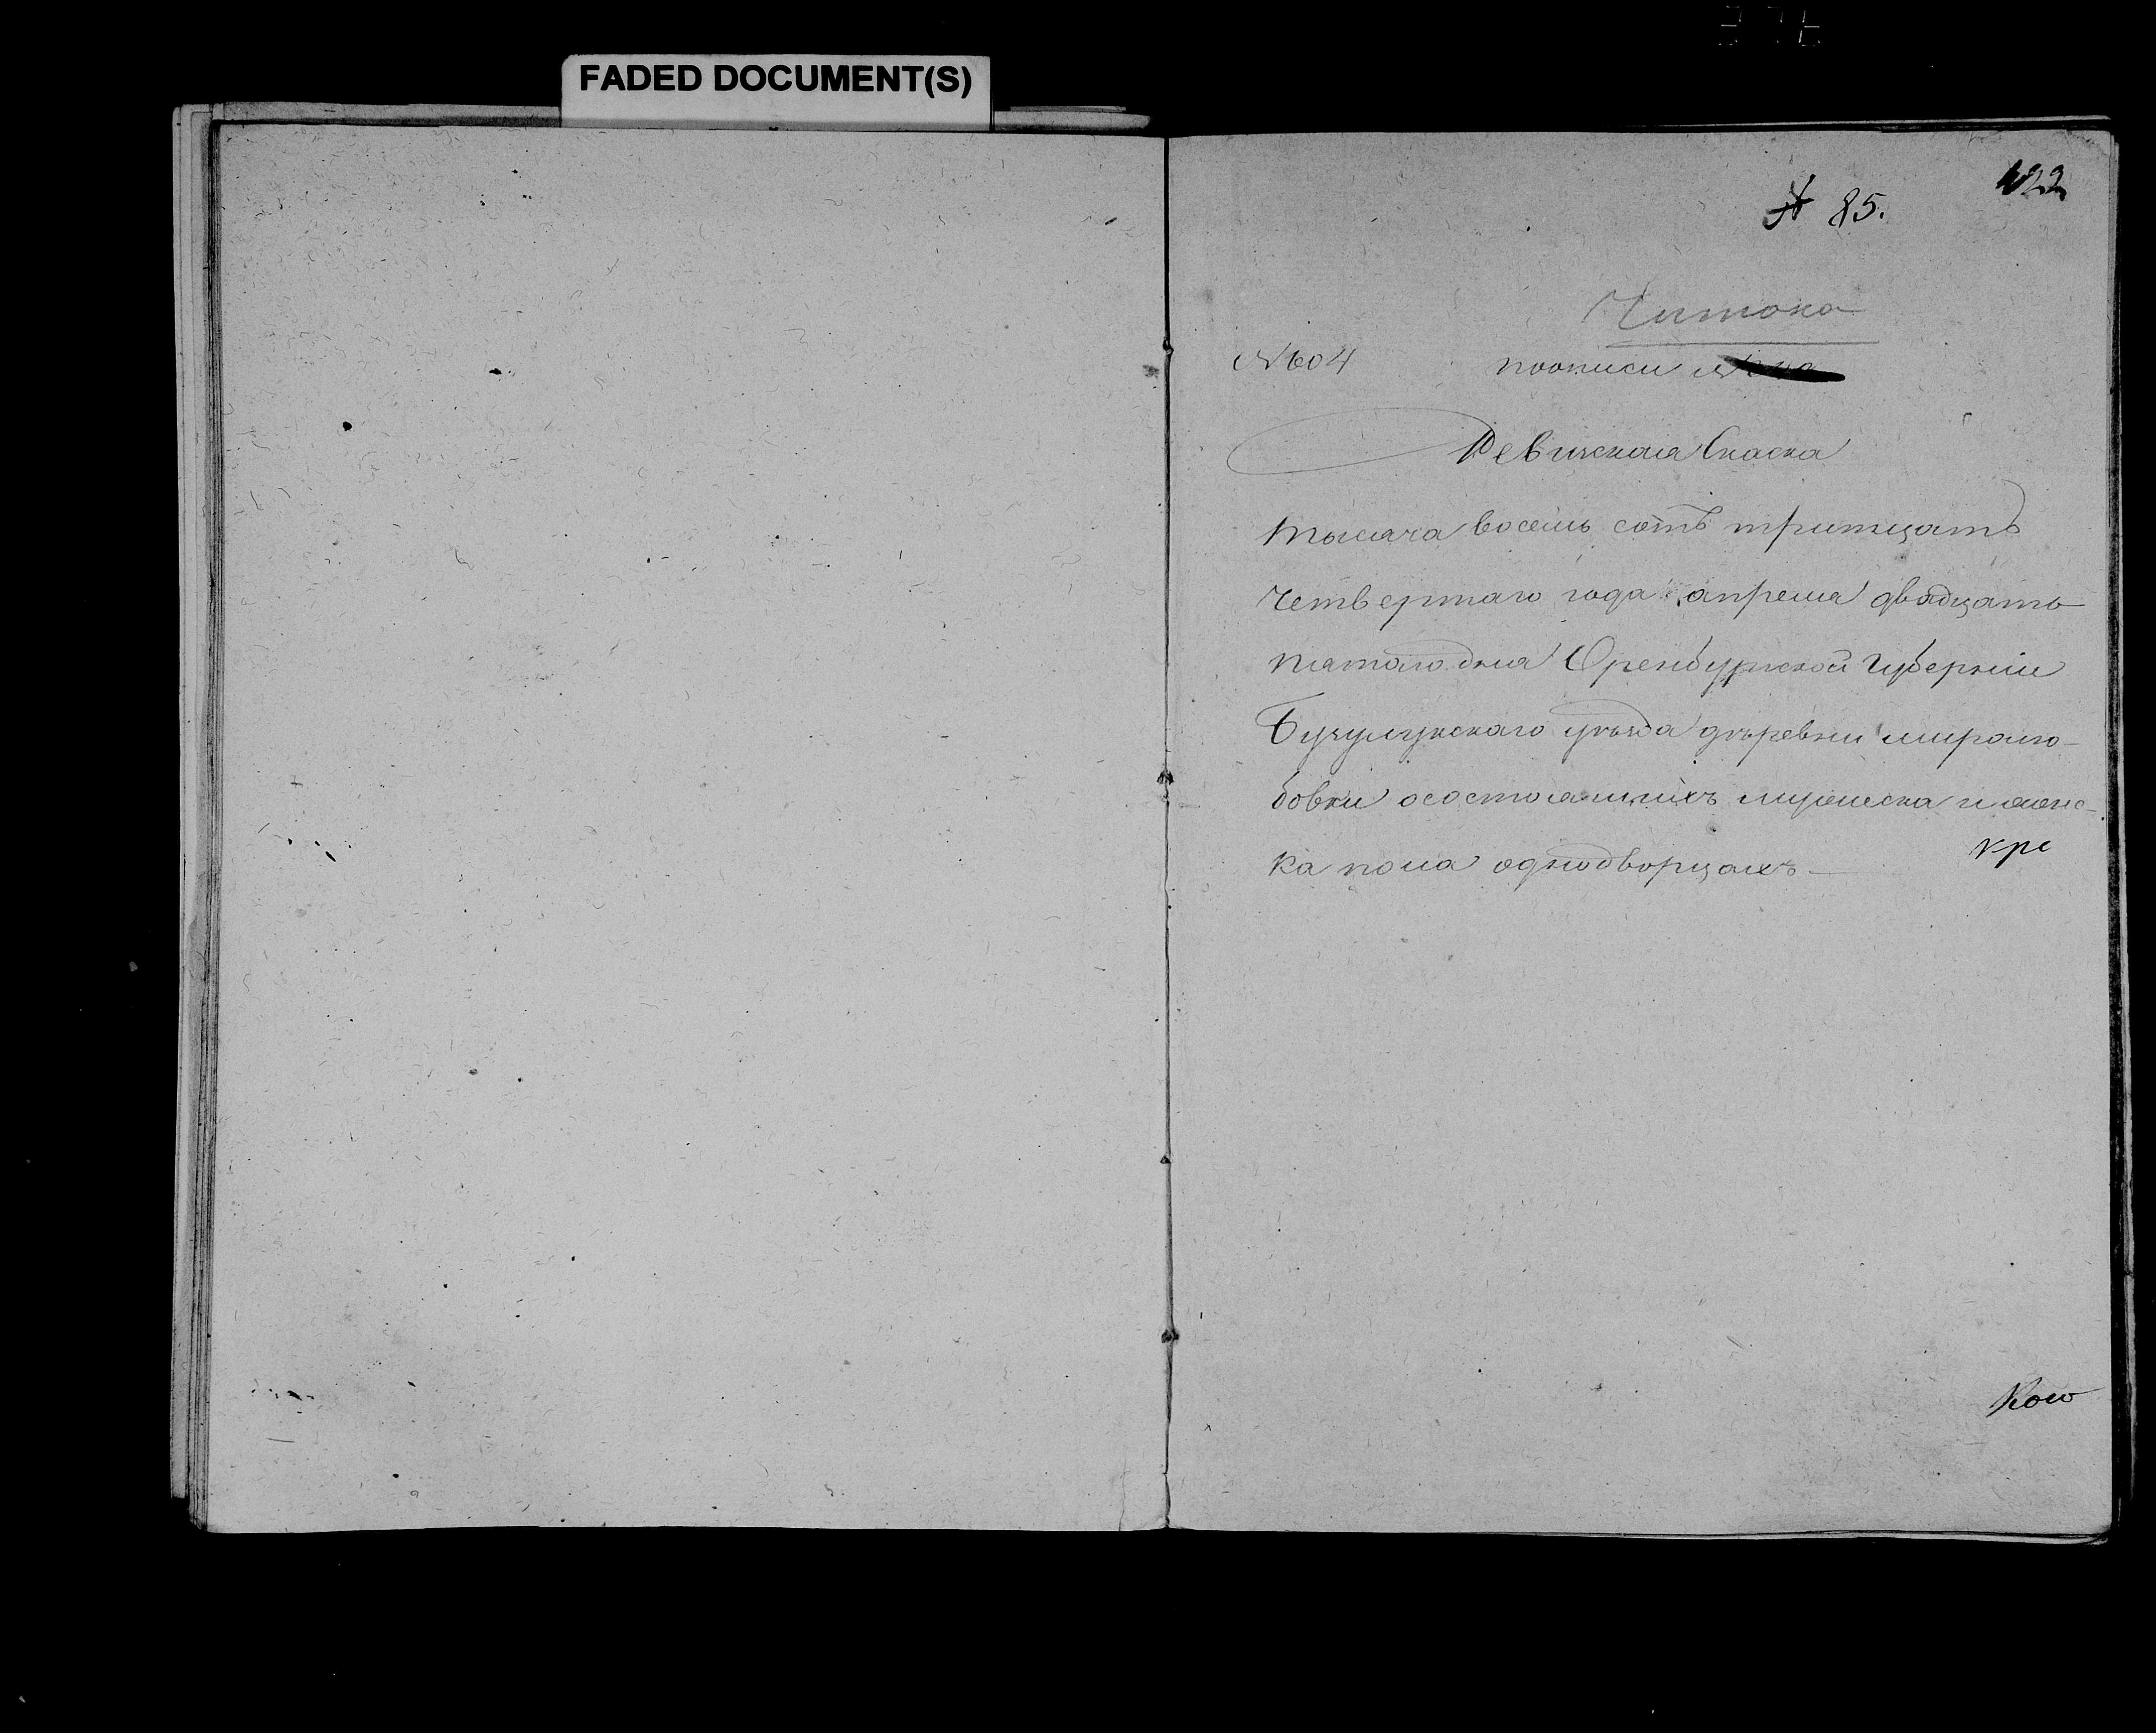 FADED DOCUMENT(S)
122
№ 85.
Читока
№604 поописи №
Ревизская Скаска
тысяча восемь сотъ тритцать
четвертаго года апреля двадцать
пятого дня Оренбургской Губернии
Бузулукскаго уѣзда дѣревни миролю-
бовки осостоящихъ мужеска и женс-
ка пола однодворцахъ
кре
Кою